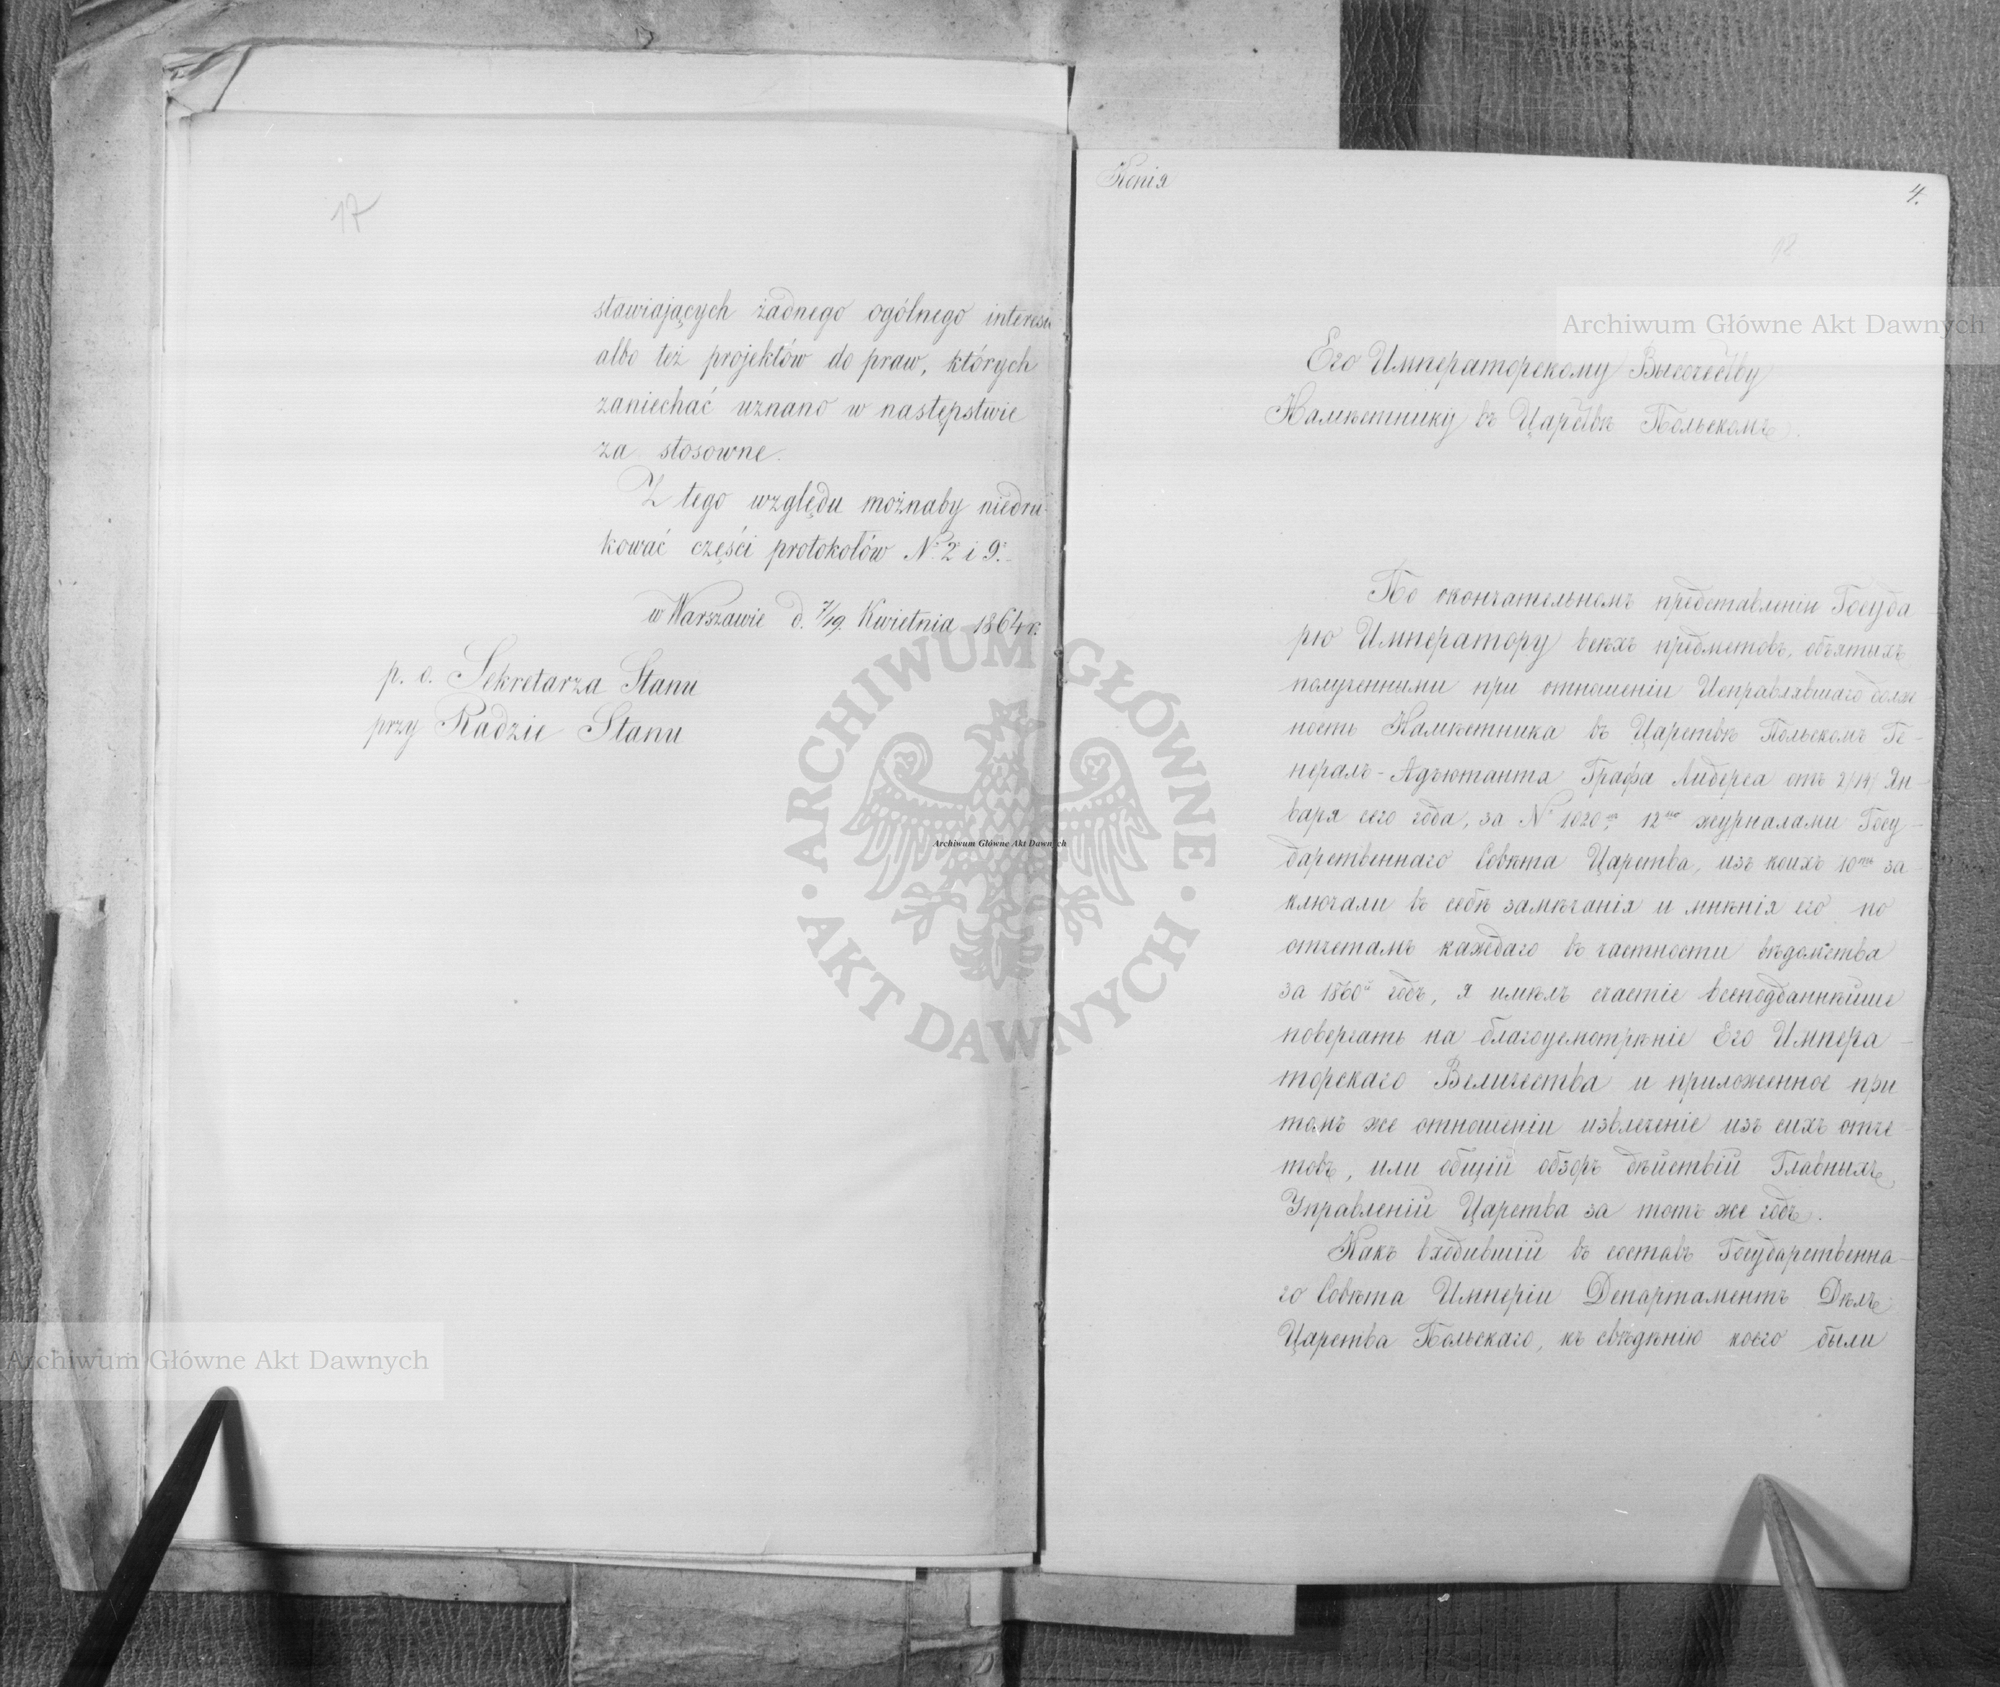 17
stawiających żadnego ogólnego interesu
albo też projektów do praw, których
zaniechać uznano w następstwie
za stosowne.
Z tego względu możnaby niedru-
kować części protokołów № 2 i 9.
w Warszawie d. 7/19. Kwietnia 1864 r.
p. o. Sekretarza Stanu
przy Radzie Stanu
Копія
4.
Его Императорскому Высочеству
Намѣстнику въ Царствѣ Польскомъ.
По окончательномъ представленіи Госуда
рю Императору всѣхъ предметовъ, объятыхъ
полученными при отношеніи Исправлявшаго долж
ность Намѣстника въ Царствѣ Польскомъ Ге-
нералъ-Адъютанта Графа Лидерса отъ 2/14 Ян-
варя сего года, за № 1020, 12ю журналами Госу-
дарственнаго Совѣта Царства, изъ коихъ 10ть за
ключали въ себѣ замѣчанія и мнѣнія его по
отчетамъ каждаго въ частности вѣдомства
за 1860й годъ, я имѣлъ счастіе всеподданнѣйше
повергать на благоусмотрѣніе Его Импера-
торскаго Величества и приложенное при
томъ же отношеніи извлеченіе изъ сихъ отче-
товъ, или общій обзоръ дѣйствій Главныхъ
Управленій Царства за тотъ же годъ.
Какъ входившій въ составъ Государственна-
го Совѣта Имперіи Департаментъ Дѣлъ
Царства Польскаго, къ свѣдѣнію коего были
Archiwum Główne Akt Dawnych
Archiwum Główne Akt Dawnych
Archiwum Główne Akt Dawnych
ARCHIWUM GŁÓWNE · AKT DAWNYCH ·